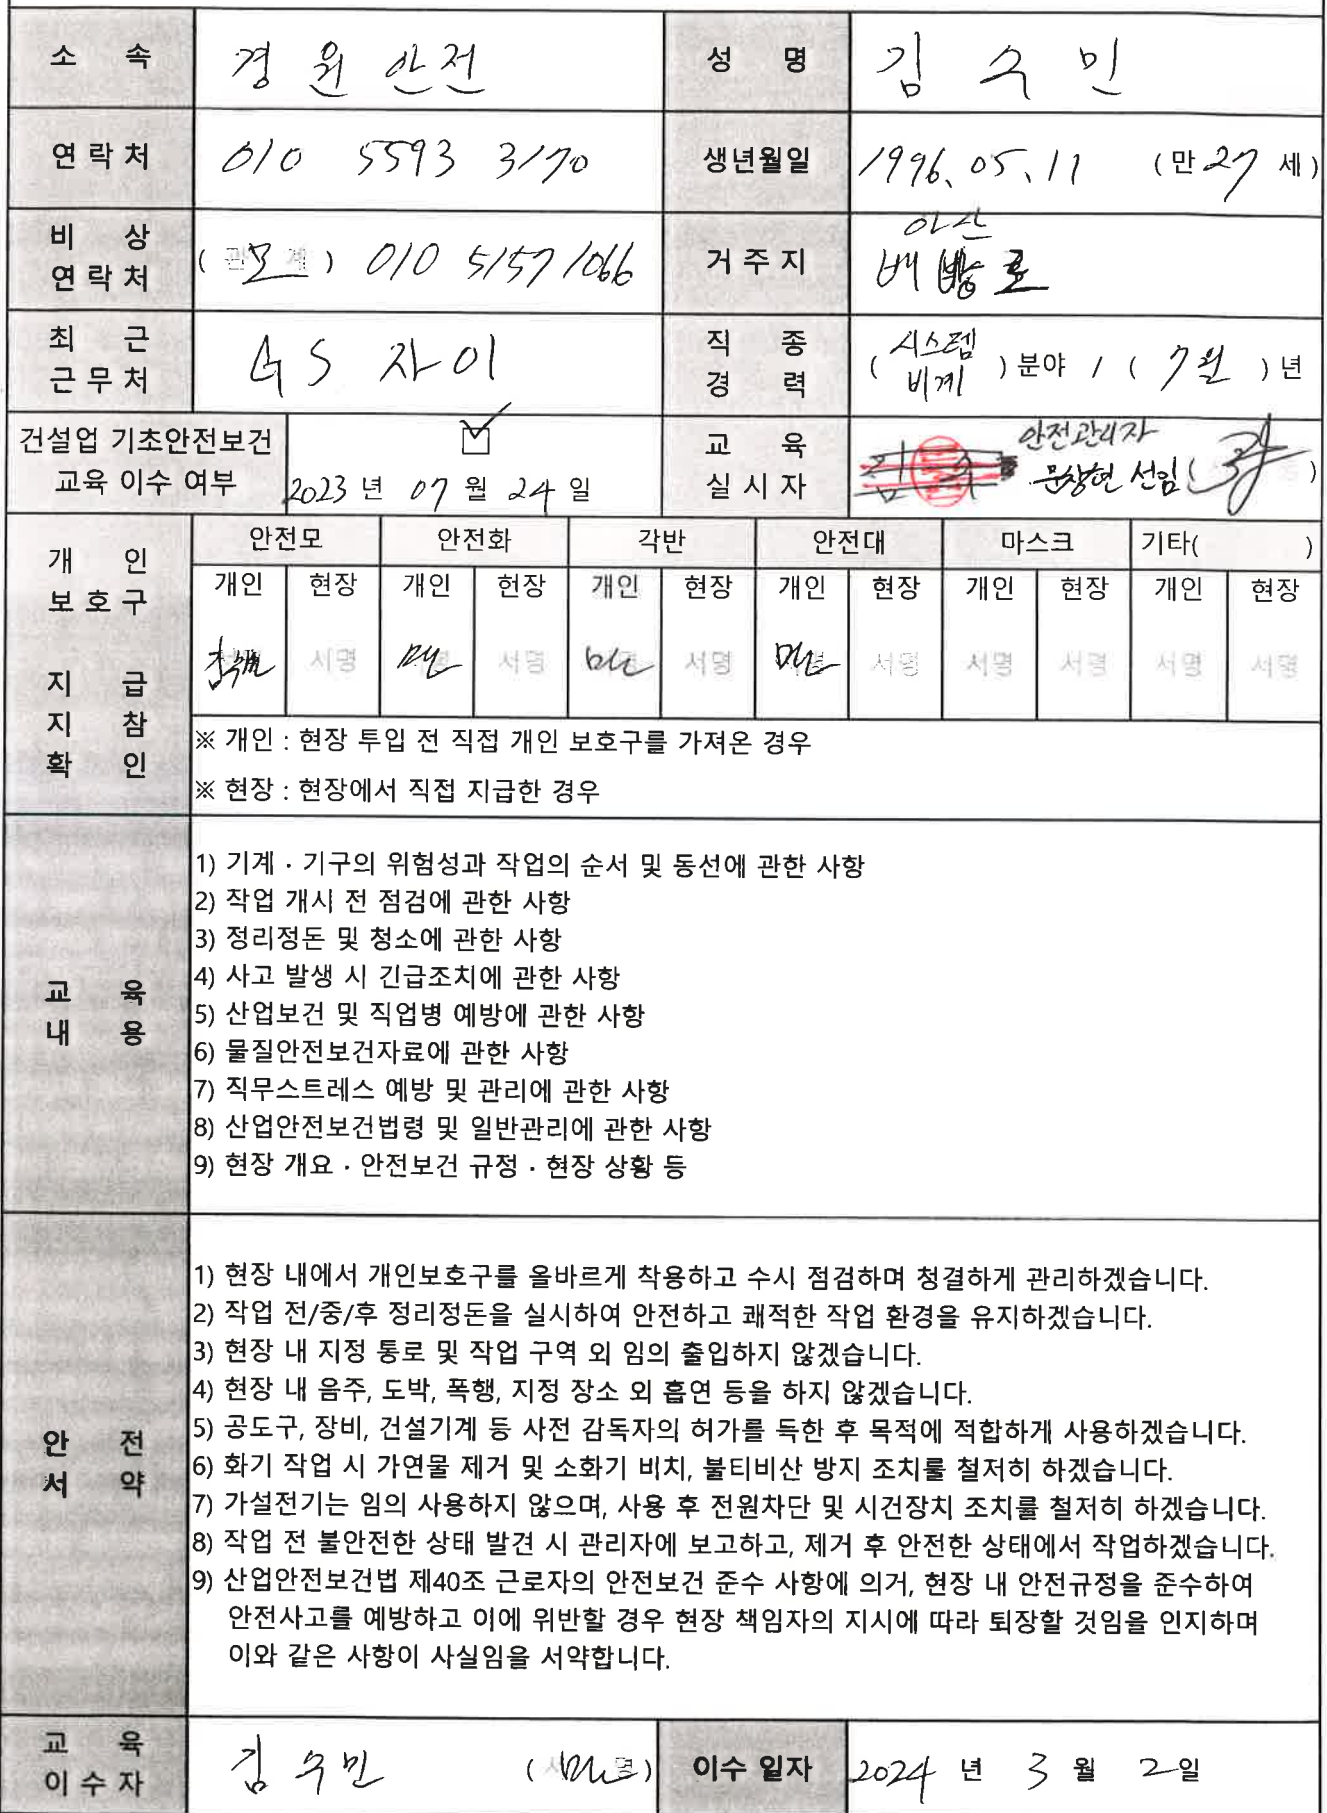 소 속 경원안전 성 명 김수민
연 락 처 010 5593 3170 생년월일 1996. 05. 11 (만 27 세)
비 상
연 락 처 (관계 모) 010 5157 1066 거 주 지 아산
배방로
최 근
근 무 처 GS 자이 직 종
경 력 (시스템
비계) 분야 / (7월) 년
건설업 기초안전보건
교육 이수 여부 2023 년 07 월 24 일 교 육
실 시 자 안전관리자
문상현 선임 ( )
개 인
보 호 구
지 급
지 참
확 인
안전모 안전화 각반 안전대 마스크 기타( )
개인 현장 개인 현장 개인 현장 개인 현장 개인 현장 개인 현장
서명 서명 서명 서명 서명 서명 서명 서명
※ 개인 : 현장 투입 전 직접 개인 보호구를 가져온 경우
※ 현장 : 현장에서 직접 지급한 경우
교 육
내 용
1) 기계 · 기구의 위험성과 작업의 순서 및 동선에 관한 사항
2) 작업 개시 전 점검에 관한 사항
3) 정리정돈 및 청소에 관한 사항
4) 사고 발생 시 긴급조치에 관한 사항
5) 산업보건 및 직업병 예방에 관한 사항
6) 물질안전보건자료에 관한 사항
7) 직무스트레스 예방 및 관리에 관한 사항
8) 산업안전보건법령 및 일반관리에 관한 사항
9) 현장 개요 · 안전보건 규정 · 현장 상황 등
안 전
서 약
1) 현장 내에서 개인보호구를 올바르게 착용하고 수시 점검하며 청결하게 관리하겠습니다.
2) 작업 전/중/후 정리정돈을 실시하여 안전하고 쾌적한 작업 환경을 유지하겠습니다.
3) 현장 내 지정 통로 및 작업 구역 외 임의 출입하지 않겠습니다.
4) 현장 내 음주, 도박, 폭행, 지정 장소 외 흡연 등을 하지 않겠습니다.
5) 공도구, 장비, 건설기계 등 사전 감독자의 허가를 득한 후 목적에 적합하게 사용하겠습니다.
6) 화기 작업 시 가연물 제거 및 소화기 비치, 불티비산 방지 조치를 철저히 하겠습니다.
7) 가설전기는 임의 사용하지 않으며, 사용 후 전원차단 및 시건장치 조치를 철저히 하겠습니다.
8) 작업 전 불안전한 상태 발견 시 관리자에 보고하고, 제거 후 안전한 상태에서 작업하겠습니다.
9) 산업안전보건법 제40조 근로자의 안전보건 준수 사항에 의거, 현장 내 안전규정을 준수하여
안전사고를 예방하고 이에 위반할 경우 현장 책임자의 지시에 따라 퇴장할 것임을 인지하며
이와 같은 사항이 사실임을 서약합니다.
교 육
이 수 자 김수민 (서명) 이수 일자 2024 년 3 월 2 일